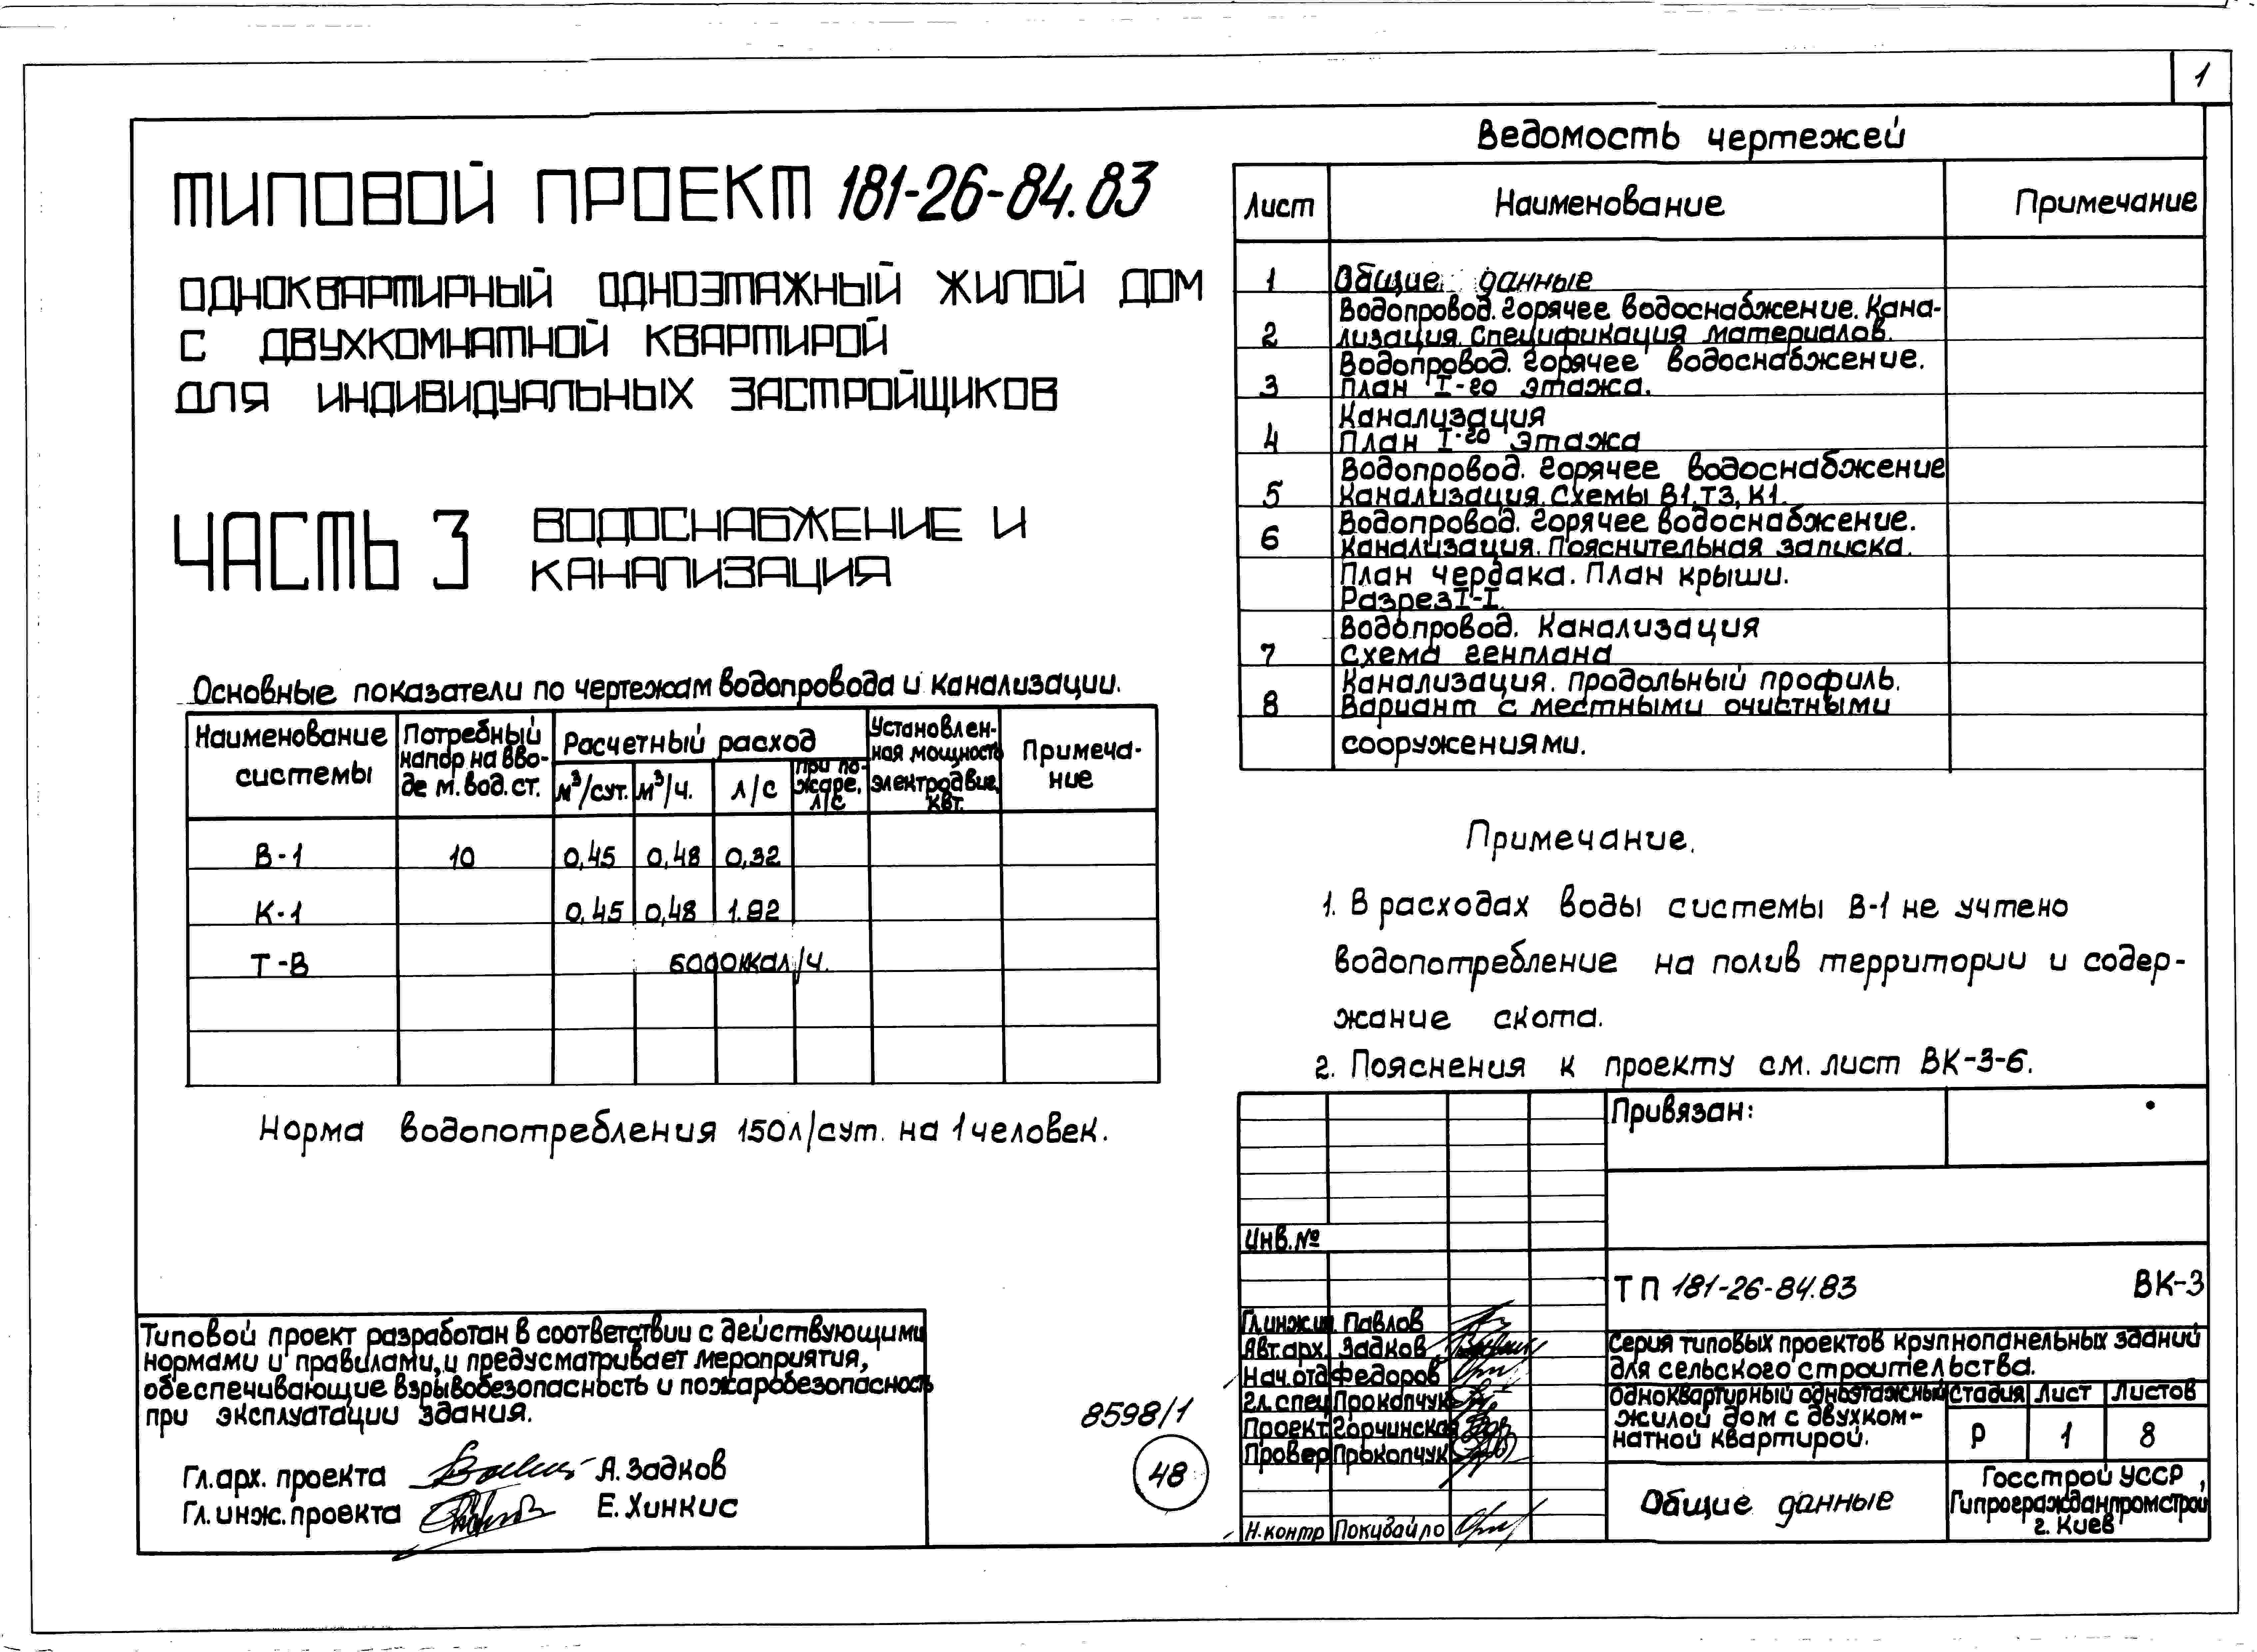 1
ТИПОВОЙ ПРОЕКТ 181-26-84.83
ОДНОКВАРТИРНЫЙ ОДНОЭТАЖНЫЙ ЖИЛОЙ ДОМ
С ДВУХКОМНАТНОЙ КВАРТИРОЙ
ДЛЯ ИНДИВИДУАЛЬНЫХ ЗАСТРОЙЩИКОВ
ЧАСТЬ 3 ВОДОСНАБЖЕНИЕ И
КАНАЛИЗАЦИЯ
Основные показатели по чертежам водопровода и канализации.
Наименование системы
Потребный напор на вво-
де м. вод. ст.
Расчетный расход
м³/сут. м³/ч. л/с
при по-
жаре,
л/с
Установлен-
ная мощность
электродвиг.
квт.
Примеча-
ние
В-1 10 0,45 0,48 0,32
К-1 0,45 0,48 1.92
Т-В 6000ккал/ч.
Норма водопотребления 150л/сут. на 1 человек.
Типовой проект разработан в соответствии с действующими
нормами и правилами, и предусматривает мероприятия,
обеспечивающие взрывобезопасность и пожаробезопасность
при эксплуатации здания.
Гл. арх. проекта А. Задков
Гл. инж. проекта Е. Хинкис
8598/1
48
Ведомость чертежей
Лист Наименование Примечание
1 Общие данные
2 Водопровод. Горячее водоснабжение. Кана-
лизация. Спецификация материалов.
3 Водопровод. Горячее водоснабжение.
План I-го этажа.
4 Канализация
План I-го этажа
5 Водопровод. Горячее водоснабжение
Канализация. Схемы В1, Т3, К1.
6 Водопровод. Горячее водоснабжение.
Канализация. Пояснительная записка.
План чердака. План крыши.
Разрез I-I.
7 Водопровод. Канализация
Схема генплана
8 Канализация. Продольный профиль.
Вариант с местными очистными
сооружениями.
Примечание.
1. В расходах воды системы В-1 не учтено
водопотребление на полив территории и содер-
жание скота.
2. Пояснения к проекту см. лист ВК-3-6.
Привязан:
Инв. №
ТП 181-26-84.83 ВК-3
Гл.инж.ин. Павлов
Авт.арх. Задков
Нач.отд Федоров
Гл.спец Прокопчук
Проект. Горчинская
Провер Прокопчук
Н.контр Покидайло
Серия типовых проектов крупнопанельных зданий
для сельского строительства.
Одноквартирный одноэтажный
жилой дом с двухком-
натной квартирой.
Стадия Лист Листов
Р 1 8
Общие данные
Госстрой УССР
Гипрогражданпромстрой
г. Киев